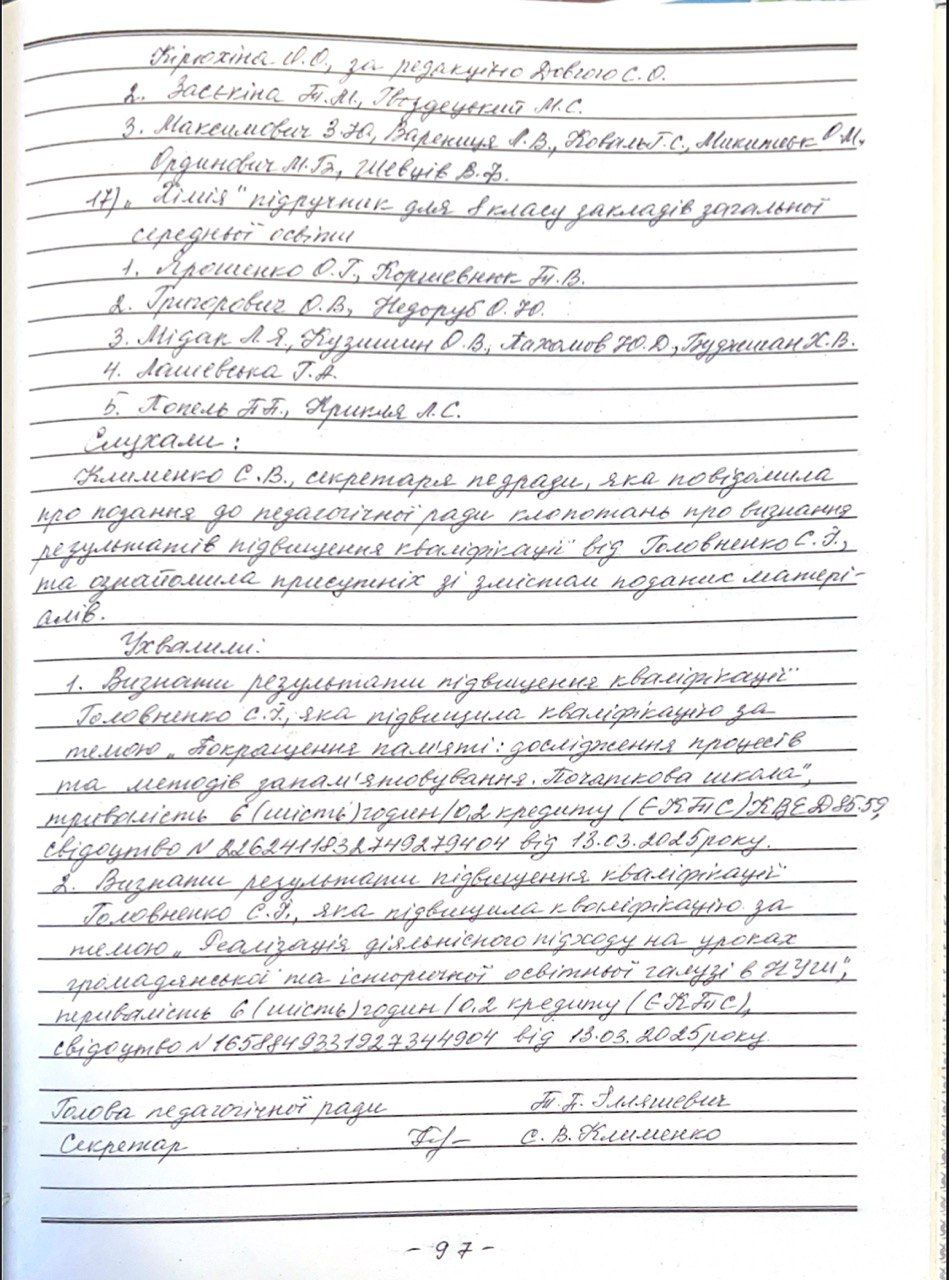 Кірюхіна О.О., за редакцією Довгого С.О.
2. Заське́на Т.М., Гвоздецький М.С.
3. Максимович З.Ю, Варениця Л.В., Коваль Г.С., Микитеек О.М,
Ординович М.Б., Шевців В.Ф.
17) „Хімія" підручник для 8 класу закладів загальної
середньої освіти
1. Ярошенко О.Г., Коршевнюк Т.В.
2. Григорович О.В., Недоруб О.Ю.
3. Мідак Л.Я., Кузишин О.В., Пахомов Ю.Д, Буджак Х.В.
4. Лашевська Г.А.
5. Попель П.П., Крикля Л.С.
Слухали:
Клименко С.В., секретаря педради, яка повідомила
про подання до педагогічної ради клопотань про визнання
результатів підвищення кваліфікації від Головненко С.Г.,
та ознайомила присутніх зі змістом поданих матері-
алів.
Ухвалили:
1. Визнати результати підвищення кваліфікації
Головненко С.Г., яка підвищила кваліфікацію за
темою „Покращення пам'яті: дослідження процесів
та методів запам'ятовування. Початкова школа",
тривалість 6 (шість) годин/0,2 кредиту (ЄКТС) КВЕД 85.59,
свідоцтво N 2262411832749279404 від 13.03.2025 року.
2. Визнати результати підвищення кваліфікації
Головненко С.Г., яка підвищила кваліфікацію за
темою „Реалізація діяльнісного підходу на уроках
громадянської та історичної освітньої галузі в НУШ",
тривалість 6 (шість) годин/0,2 кредиту (ЄКТС),
свідоцтво N 1658849331927344904 від 13.03.2025 року.
Голова педагогічної ради Т.П. Ілляшевич
Секретар С.В. Клименко
- 97 -